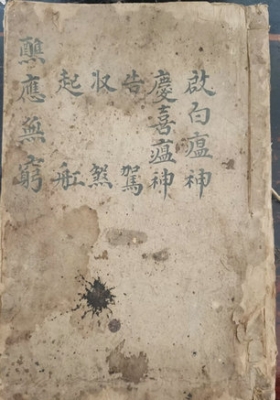 啟白瘟神
慶喜瘟神
告駕
収煞
起舡
應無窮